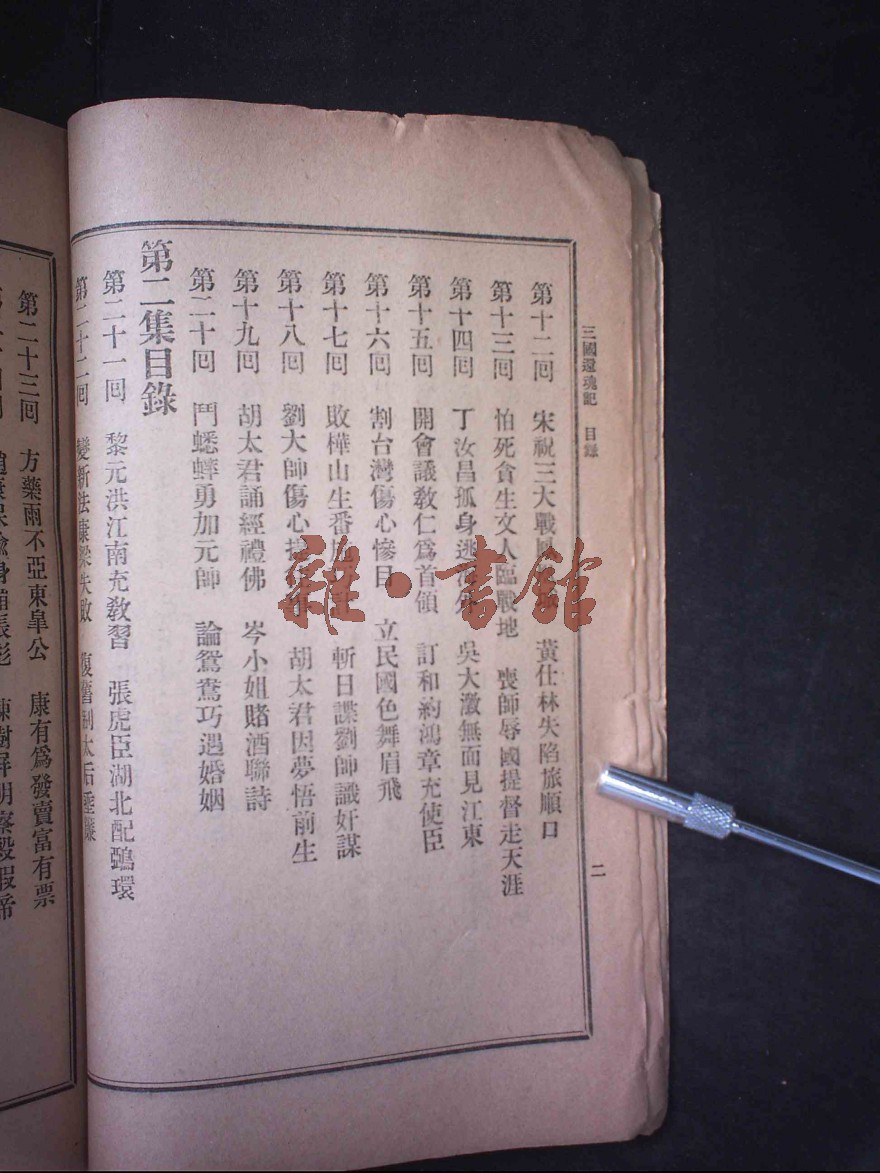 三國還魂記 目錄 二
第十二回 宋祝三大戰 黃仕林失陷旅順口
第十三回 怕死貪生文人臨戰地 喪師辱國提督走天涯
第十四回 丁汝昌孤身逃海外 吳大澂無面見江東
第十五回 開會議敎仁爲首領 訂和約鴻章充使臣
第十六回 割台灣傷心慘目 立民國色舞眉飛
第十七回 敗樺山生番 斬日諜劉帥識奸謀
第十八回 劉大帥傷心 胡太君因夢悟前生
第十九回 胡太君誦經禮佛 岑小姐賭酒聯詩
第二十回 鬥蟋蟀勇加元帥 論鴛鴦巧遇婚姻
第二集目錄
第二十一回 黎元洪江南充敎習 張虎臣湖北配鴉環
第二十二回 變新法康梁失敗 復舊制太后垂簾
第二十三回 方藥雨不亞東皐公 康有爲發賣富有票
身 張彪 陳樹屏明察 假帝
雜·書館